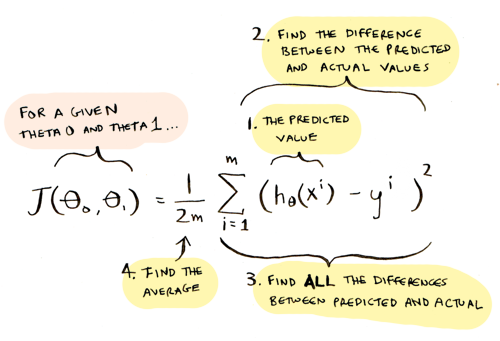 2. FIND THE DIFFERENCE
BETWEEN THE PREDICTED
AND ACTUAL VALUES
FOR A GIVEN
THETA 0 AND THETA 1...
1. THE PREDICTED
VALUE
J(θ₀,θ₁) = 1/2m ∑ᵢ₌₁ᵐ (hθ(xⁱ) - yⁱ)²
4. FIND THE
AVERAGE
3. FIND ALL THE DIFFERENCES
BETWEEN PREDICTED AND ACTUAL